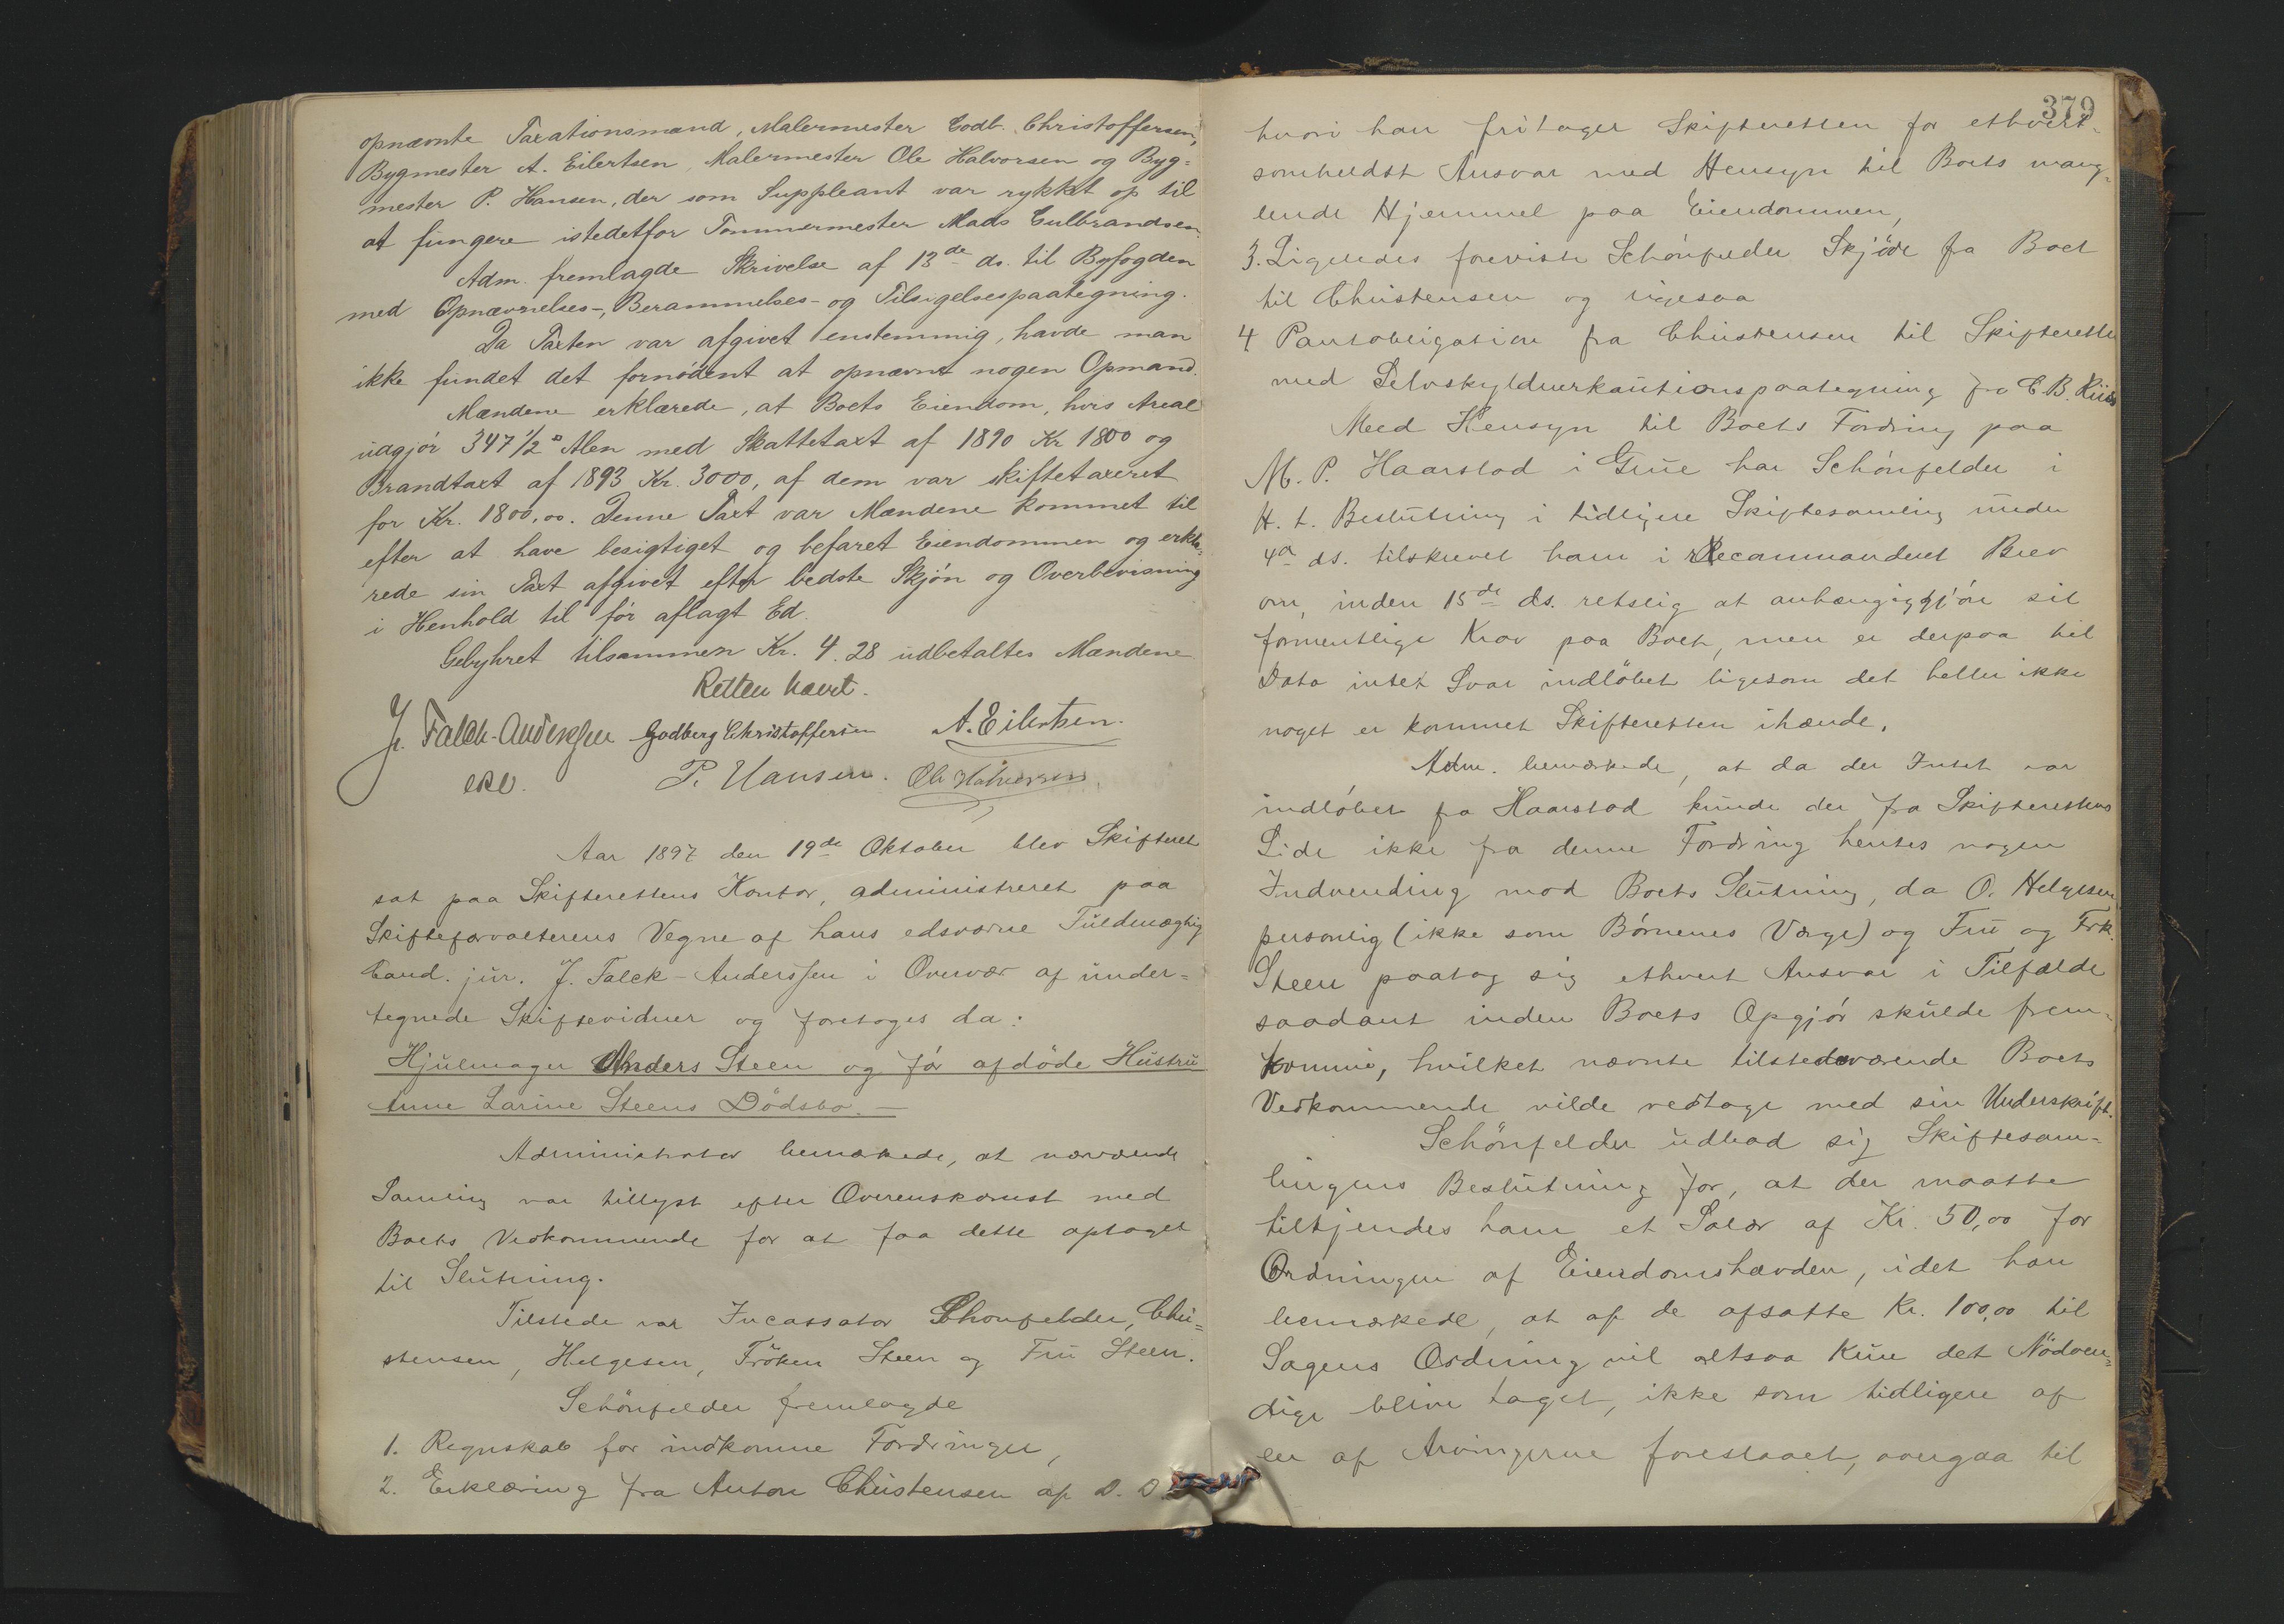 opnævnte Taxationsmænd, Malermester Godb. Christoffersen,
Bygmester A. Eilertsen, Malermester Ole Halvorsen og Byg=
mester P. Hansen, der som Suppleant var rykket op til
at fungere istedetfor Tømmermester Mads Gulbrandsen.
Adm. fremlagde Skrivelse af 13de ds. til Byfogden
med Opnævnelses-, Berammelses- og Tilsigelsespaategning.
Da Taxten var afgivet enstemmig, havde man
ikke fundet det fornødent at opnævne nogen Opmand.
Mændene erklærede, at Boets Eiendom, hvis Areal
udgjør 347 1/2 □ Alen med Skattetaxt af 1890 Kr 1800 og
Brandtaxt af 1893 Kr. 3000, af dem var skiftetaxeret
for Kr. 1800,00. Denne Taxt var Mændene kommet til
efter at have besigtiget og befaret Eiendommen og erklæ-
rede sin Taxt afgivet efter bedste Skjøn og Overbevisning
i Henhold til før aflagt Ed.
Gebyhret tilsammen Kr. 4.28 udbetaltes Mændene
Retten hævet.
J. Falck-Anderssen Godberg Christoffersen A. Eilertsen.
P. Hansen. Ole Halvorsen.
Aar 1897 den 19de Oktober blev Skifteret
sat paa Skifterettens Kontor, administreret paa
Skifteforvalterens Vegne af hans edsvorne Fuldmægtig
Cand. jur. J. Falck-Anderssen i Overvær af under=
tegnede Skiftevidner og foretoges da:
Hjulmager Anders Steen og før afdøde Hustru
Anne Larine Steens Dødsbo. —
Administrator bemærkede, at nærværende
Samling var tillyst efter Overenskomst med
Boets Vedkommende for at faa dette optaget
til Slutning.
Tilstede var Incassator Schønfelder, Chri=
stensen, Helgesen, Frøken Steen og Fru Steen.
Schönfelder fremlagde
1. Regnskab for indkomne Fordringer,
2. Erklæring fra Anton Christensen af D. D.
379
hvori han fritager Skifteretten for ethvert-
somheldst Ansvar med Hensyn til Boets mang=
lende Hjemmel paa Eiendommen,
3. Ligeledes foreviste Schönfelder Skjøde fra Boet
til Christensen og ligesaa
4 Pantobligation fra Christensen til Skifteretten
med Selvskyldnerkautionspaategning fra C. B. Riis
Med Hensyn til Boets Fordring paa
M. P. Haarstad i Grue har Schönfelder i
H. t. Beslutning i tidligere Skiftesamling under
4de ds. tilskrevet ham i Recommanderet Brev
om, inden 15de ds. retslig at anhængiggjøre sit
formentlige Krav paa Boet, men er derpaa til
Dato intet Svar indløbet ligesom det heller ikke
noget er kommet Skifteretten ihænde.
Adm. bemærkede, at da der Intet var
indløbet fra Haarstad kunde der fra Skifterettens
Side ikke fra denne Fordring hentes nogen
Indvending mod Boets Slutning, da O. Helgesen,
personlig (ikke som Børnenes Værge) og Fru og Frk.
Steen paatog sig ethvert Ansvar i Tilfælde
saadant inden Boets Opgjør skulde frem=
komme, hvilket nævnte tilstedeværende Boets
Vedkommende vilde vedtage med sin Underskrift.
Schönfelder udbad sig Skiftesam=
lingens Beslutning for, at der maatte
tilkjendes ham et Salær af Kr. 50,00 for
Ordningen af Eiendomshævden, idet han
bemærkede, at af de afsatte Kr. 100,00 til
Sagens Ordning vil altsaa kun det Nødven=
dige blive taget, ikke som tidligere af
en af Arvingerne foreslaaet, overgaa til